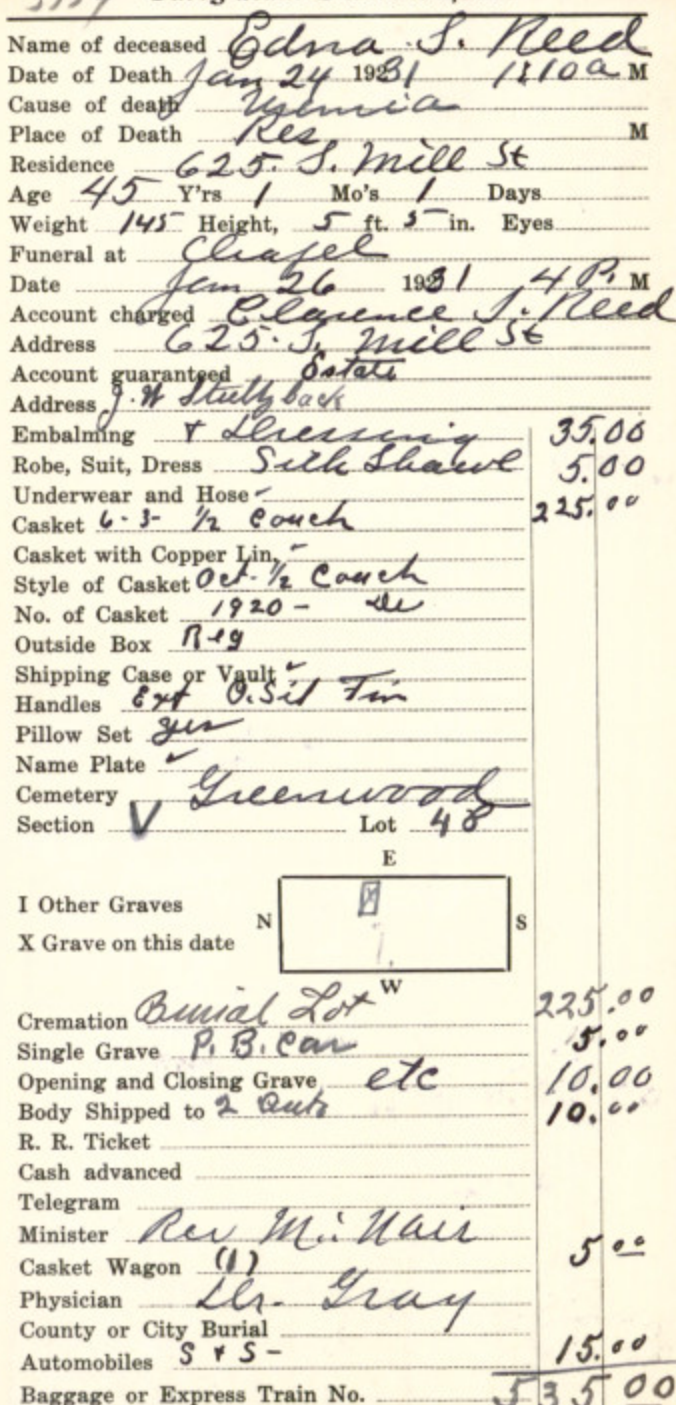 Name of deceased Edna S. Reed
Date of Death Jan 24 1931 1:10 a M
Cause of death Uremia
Place of Death Res M
Residence 625. S. Mill St
Age 45 Y'rs 1 Mo's 1 Days
Weight 145 Height, 5 ft. 5 in. Eyes
Funeral at Chapel
Date Jan 26 1931 4 P. M
Account charged Clarence S. Reed
Address 625. S. Mill St
Account guaranteed Estate
Address J. W
Embalming & Dressing 35.00
Robe, Suit, Dress Silk Shawl 5.00
Underwear and Hose
Casket 6-3- 1/2 Couch 225.00
Casket with Copper Lin.
Style of Casket Oct. 1/2 Couch
No. of Casket 1920 -
Outside Box Reg
Shipping Case or Vault
Handles Ext O. Sil Fin
Pillow Set yes
Name Plate
Cemetery Greenwood
Section V Lot 48
E
I Other Graves
N S
X Grave on this date
W
Cremation Burial Lot 225.00
Single Grave P. B. Car 5.00
Opening and Closing Grave etc 10.00
Body Shipped to 2 Auto 10.00
R. R. Ticket
Cash advanced
Telegram
Minister Rev Mc Nair
Casket Wagon (1) 5 00
Physician Dr. Gray
County or City Burial
Automobiles S & S - 15.00
Baggage or Express Train No. 535 00